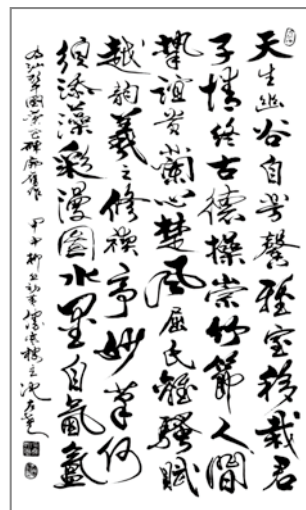 天生幽谷自芳馨雅室移栽君
子情終古德操崇竹節人間
摯誼貴蘭心楚風屈氏離騷賦
越韻羲之修禊亭妙筆何
須添藻彩漫圖水墨自氤氳
甲午柳月